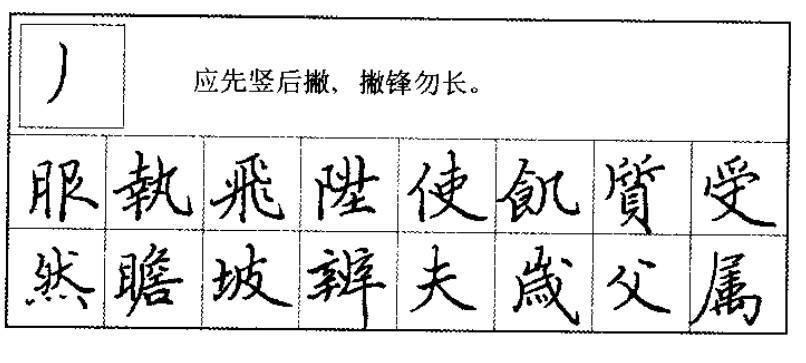 丿 应先竖后撇、撇锋勿长。
服執飛陛使飢質受
然瞻坡辨夫歲父属